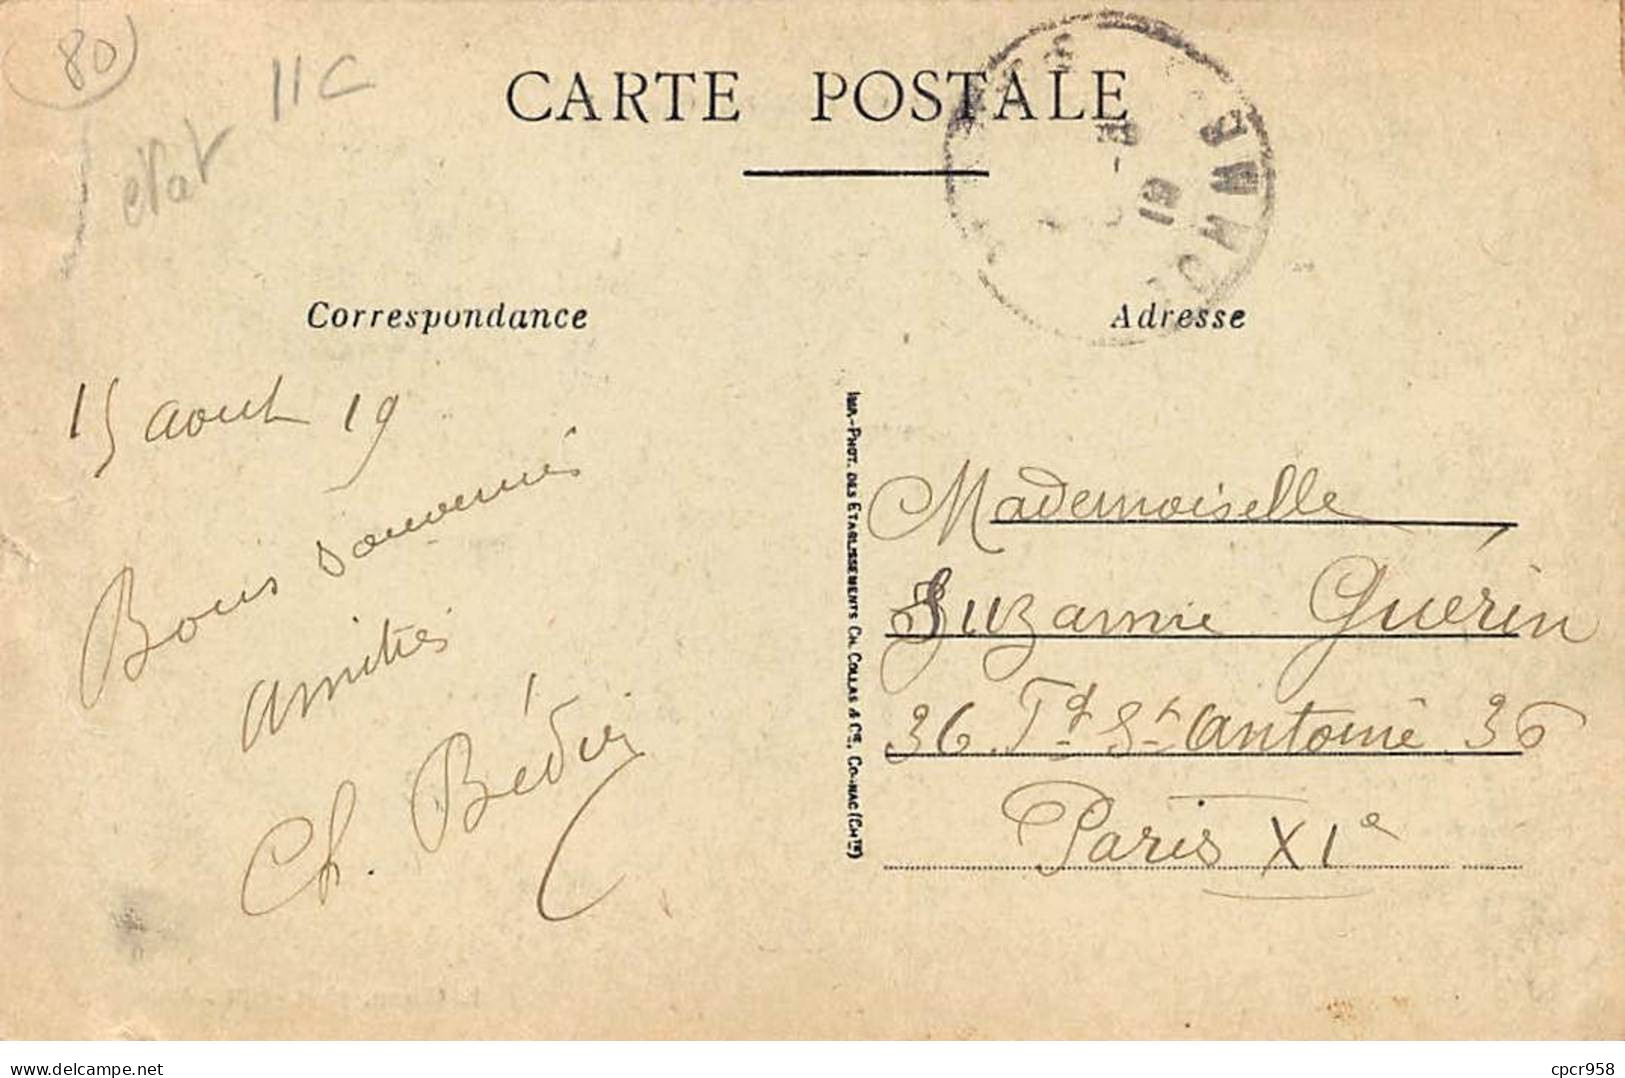 80
11C
état
CARTE POSTALE
SOMME
19
Correspondance
Adresse
15 aout 19
Bons souvenirs
amitiés
Ch. Bédier
IMP.-PHOT. DES ETABLISSEMENTS CH. COLLAS & Cie, COGNAC (CHte)
Mademoiselle
Suzanne Guérin
36. Fg St Antoine 36
Paris XIe
www.delcampe.net
cpcr958